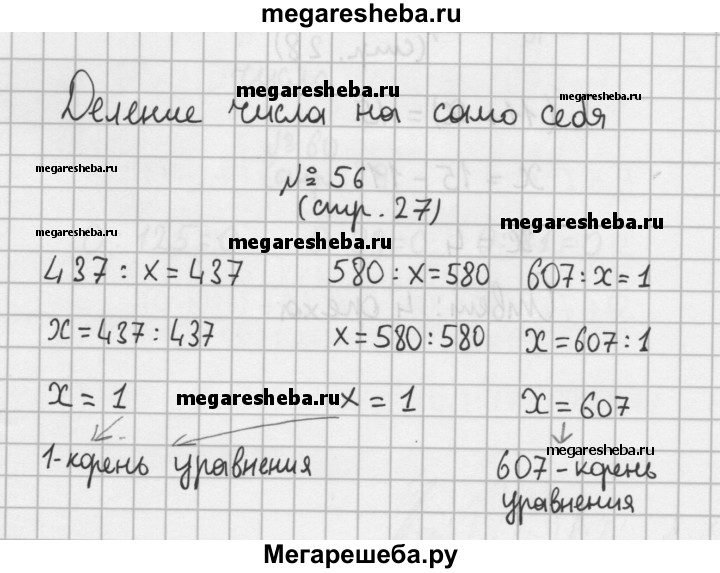 megaresheba.ru
Деление числа на само себя
megaresheba.ru
megaresheba.ru
megaresheba.ru
№ 56
(стр. 27)
megaresheba.ru
megaresheba.ru
megaresheba.ru
437 : x = 437 580 : x = 580 607 : x = 1
x = 437 : 437 x = 580 : 580 x = 607 : 1
x = 1 megaresheba.ru x = 1 x = 607
megaresheba.ru
1-корень уравнения 607 - корень
уравнения
Мегарешеба.ру